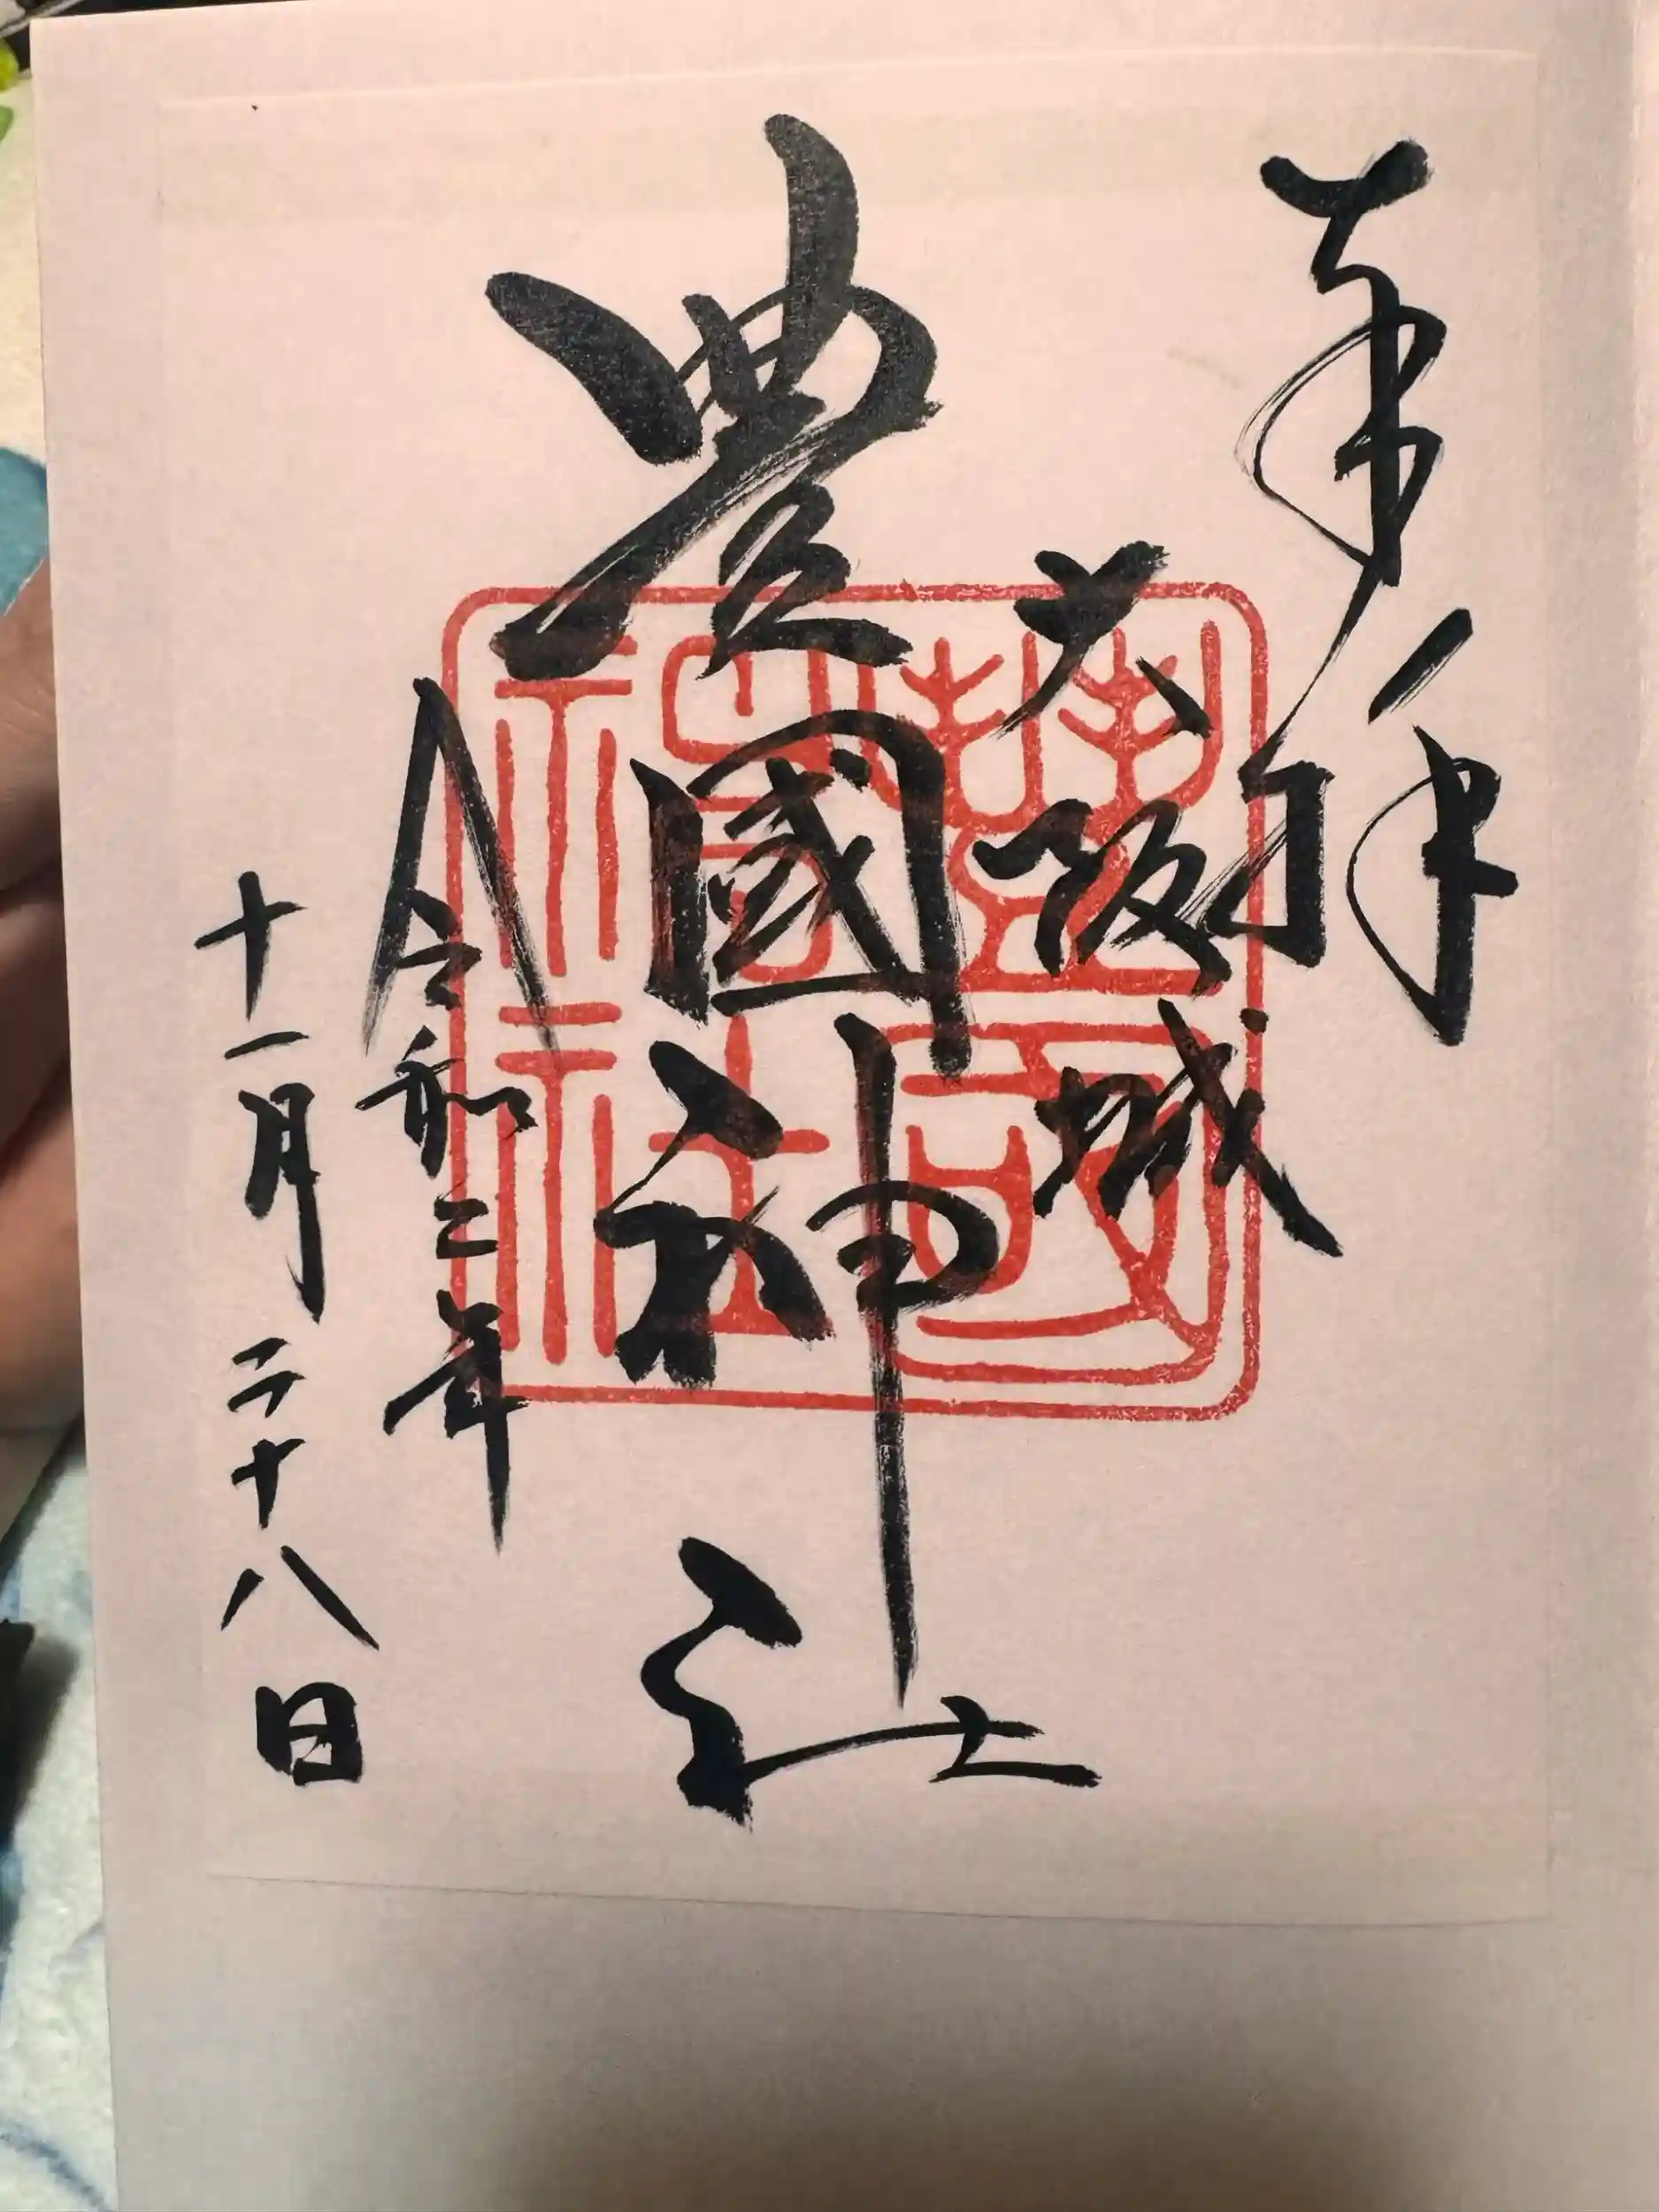 奉拝
大阪城
豊國神社
令和二年
十一月二十八日
豊國神社